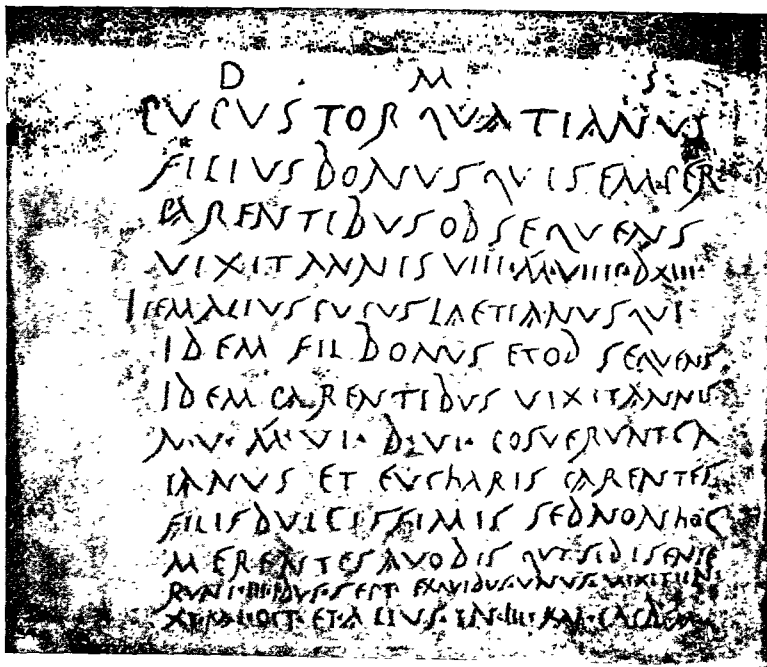 D · M S
CVCVS TORQVATIANVS
FILIVS BONVS QVI SEMPER
PARENTIBVS OBSEQVENS
VIXIT ANNIS VIIII·M·VIIII·D XIII·
ITEM ALIVS CVCVS LAETIANVS QVI
IDEM FIL BONVS ET OBSEQVENS
IDEM PARENTIBVS VIXIT ANNIS
N·V·M·VI·D·VI· POSVERVNT GA
IANVS ET EVCHARIS PARENTES
FILIS DVLCISSIMIS SED NON HOC
MERENTES A VOBIS
SEPT VNVS·VIXIT IN
OCT·ET·ALIVS·IN·III·KAL·